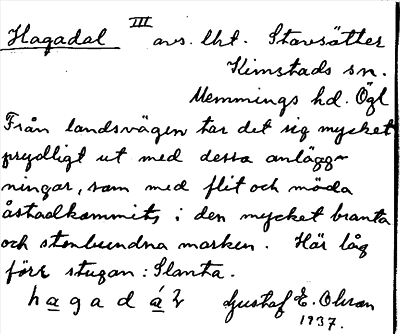 Hagadal III avs. lht. Stavsätter
Kimstads sn.
Memmings hd. Ögl
Från landsvägen tar det sig mycket
prydligt ut med dessa anlägg-
ningar, som med flit och möda
åstadkommits i den mycket branta
och stenbundna marken. Här låg
förr stugan: Slanta.
hagadál Gustaf E.
1937.